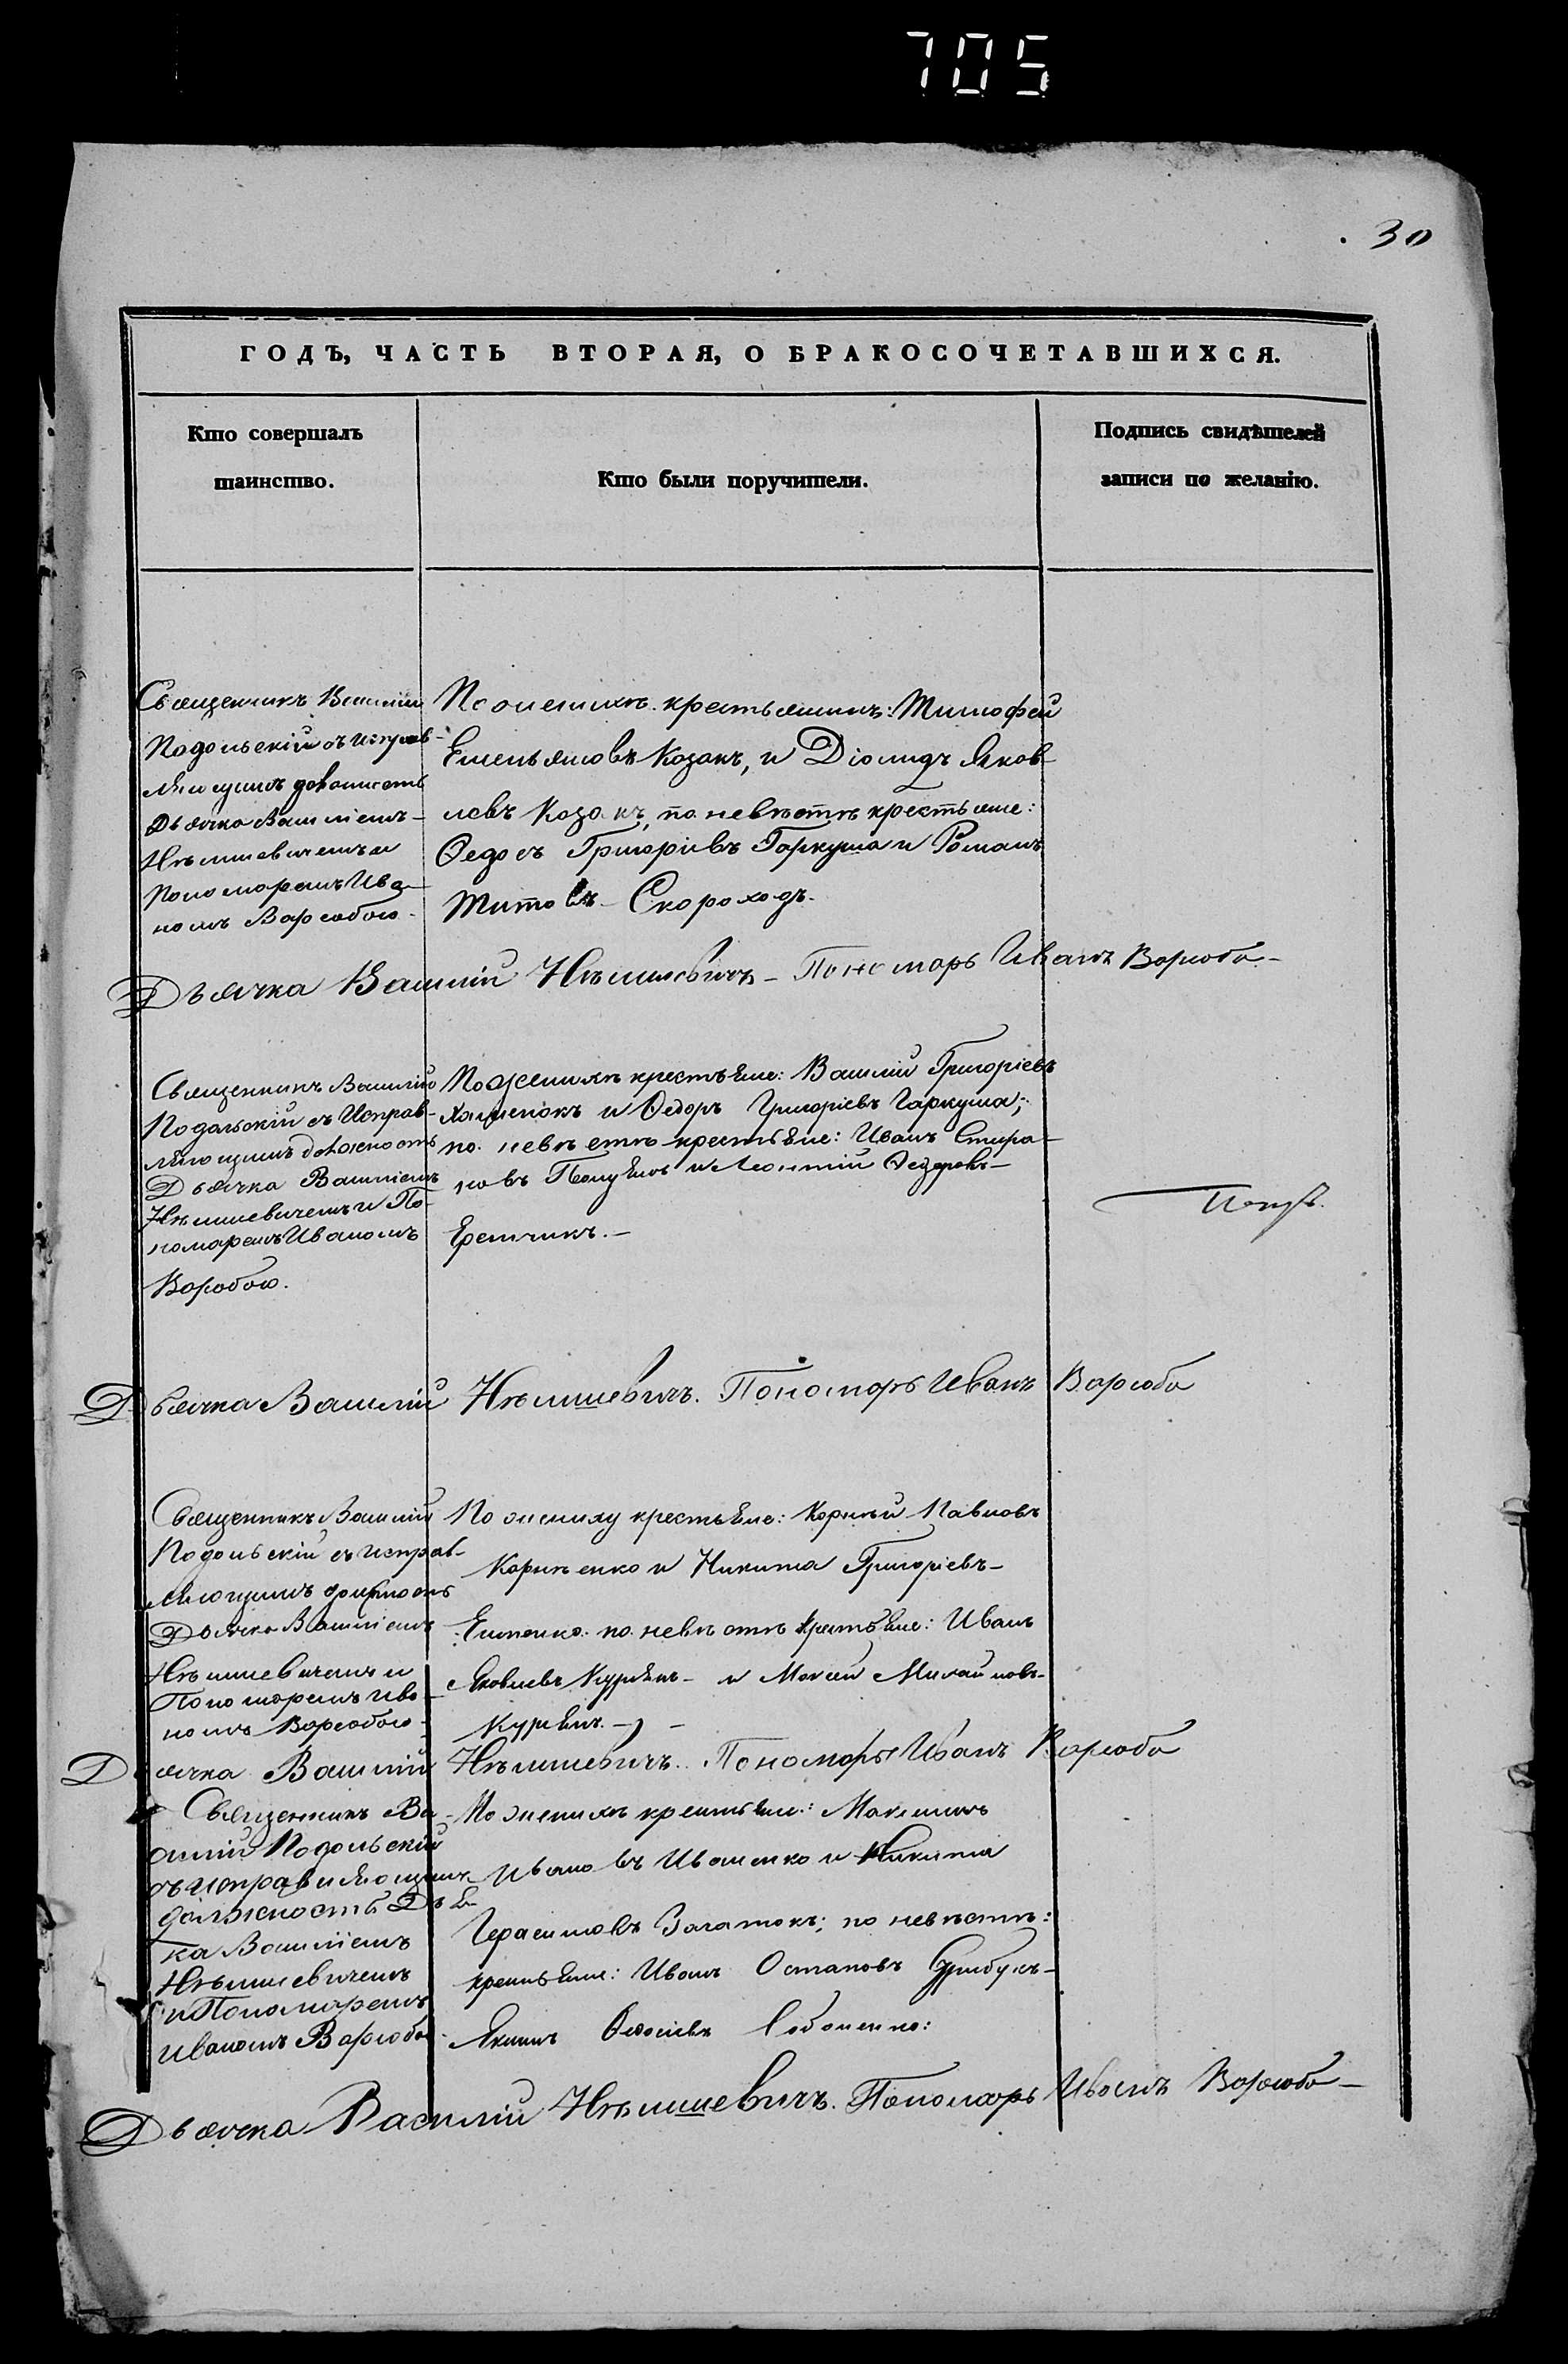 705
30
ГОДЪ, ЧАСТЬ ВТОРАЯ, О БРАКОСОЧЕТАВШИХСЯ.
Кто совершалъ
таинство.
Кто были поручители.
Подпись свидѣтелей
записи по желанію.
Священникъ Василій
Подольскій съ исправ-
ляющимъ должность
Дьячка Василіемъ
Нѣмшевичемъ и
Пономаремъ Ива-
номъ Воробою.
По женихѣ крестьянинъ: Тимофей
Емельяновъ Козакъ, и Діомидъ Яков-
левъ Козакъ, по невѣстѣ крестьяне:
Ѳедосъ Григоріевъ Гаркуша и Романъ
Титовъ Скороходъ.
Дьячка Василій Нѣмшевичъ – Пономарь Иванъ Вороба –
Священникъ Василій
Подольскій съ Исправ-
ляющимъ должность
Дьячка Василіемъ
Нѣмшевичемъ и По-
номаремъ Иваномъ
Воробою.
По женихѣ крестьяне: Василій Григоріевъ
и Ѳедоръ Григоріевъ Гаркуша;
по невѣстѣ крестьяне: Иванъ
и Леонтій Ѳедоровъ
Дьячка Василій Нѣмшевичъ. Пономарь Иванъ Вороба
Священникъ Василій
Подольскій съ исправ-
ляющимъ должность
Дьячка Василіемъ
Нѣмшевичемъ и
Пономаремъ Ива-
номъ Воробою
По жениху крестьяне: Корнѣй Павловъ
Корнѣенко и Никита Григоріевъ –
по невѣстѣ крестьяне: Иванъ
Яковлевъ и Михайловъ
Дьячка Василій Нѣмшевичъ. Пономарь Иванъ Вороба
Священникъ Ва-
силій Подольскій
съ исправляющимъ
должность Дья-
чка Василіемъ
Нѣмшевичемъ
и Пономаремъ
Иваномъ Воробою
По женихѣ крестьяне: Максимъ
Ивановъ Иващенко и Никита
Герасимовъ по невѣстѣ:
крестьяне: Иванъ Остаповъ
Якимъ
Дьячка Василій Нѣмшевичъ. Пономарь Иванъ Вороба –